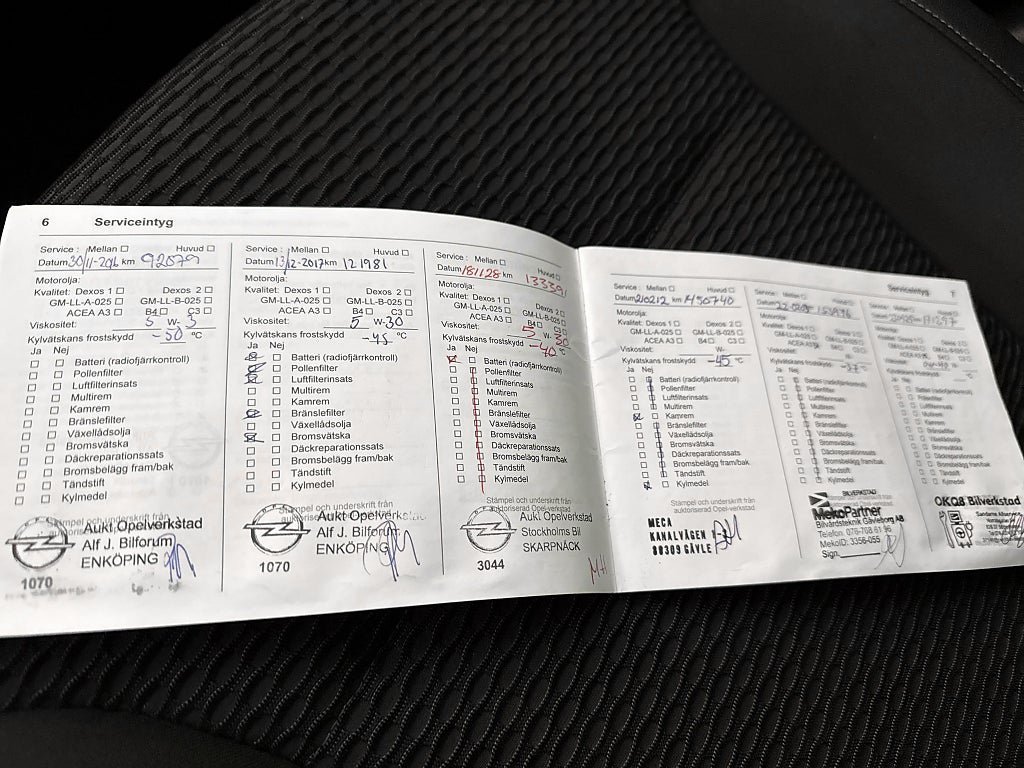 6 Serviceintyg
Service : Mellan Huvud
Datum 30/11-2016 km 92079
Motorolja:
Kvalitet: Dexos 1 Dexos 2
GM-LL-A-025 GM-LL-B-025
ACEA A3 B4 C3
Viskositet: 5 W- 3
Kylvätskans frostskydd -50 °C
Ja Nej
Batteri (radiofjärrkontroll)
Pollenfilter
Luftfilterinsats
Multirem
Kamrem
Bränslefilter
Växellådsolja
Bromsvätska
Däckreparationssats
Bromsbelägg fram/bak
Tändstift
Kylmedel
Stämpel och underskrift från
auktoriserad Opel-verkstad
Aukt Opelverkstad
Alf J. Bilforum
ENKÖPING
1070
Service : Mellan Huvud
Datum 13/2-2017 km 121981
Motorolja:
Kvalitet: Dexos 1 Dexos 2
GM-LL-A-025 GM-LL-B-025
ACEA A3 B4 C3
Viskositet: 5 W-30
Kylvätskans frostskydd -45 °C
Ja Nej
Batteri (radiofjärrkontroll)
Pollenfilter
Luftfilterinsats
Multirem
Kamrem
Bränslefilter
Växellådsolja
Bromsvätska
Däckreparationssats
Bromsbelägg fram/bak
Tändstift
Kylmedel
Stämpel och underskrift från
Aukt Opelverkstad
Alf J. Bilforum
ENKÖPING
1070
Service : Mellan Huvud
Datum 181128 km 133391
Motorolja:
Kvalitet: Dexos 1 Dexos 2
GM-LL-A-025 GM-LL-B-025
ACEA A3 B4 C3
Viskositet: 5 W- 30
Kylvätskans frostskydd -40 °C
Ja Nej
Batteri (radiofjärrkontroll)
Pollenfilter
Luftfilterinsats
Multirem
Kamrem
Bränslefilter
Växellådsolja
Bromsvätska
Däckreparationssats
Bromsbelägg fram/bak
Tändstift
Kylmedel
Stämpel och underskrift från
auktoriserad Opel-verkstad
Aukt Opelverkstad
Stockholms Bil
SKARPNÄCK
3044
MH
Serviceintyg
Service : Mellan Huvud
Datum 210212 km 150740
Motorolja:
Kvalitet: Dexos 1 Dexos 2
GM-LL-A-025 GM-LL-B-025
ACEA A3 B4 C3
Viskositet: W-
Kylvätskans frostskydd -45 °C
Ja Nej
Batteri (radiofjärrkontroll)
Pollenfilter
Luftfilterinsats
Multirem
Kamrem
Bränslefilter
Växellådsolja
Bromsvätska
Däckreparationssats
Bromsbelägg fram/bak
Tändstift
Kylmedel
Stämpel och underskrift från
auktoriserad Opel-verkstad
MECA
KANALVÄGEN 1-3
80309 GÄVLE
Motorolja:
Kylvätskans frostskydd
Ja Nej
Batteri (radiofjärrkontroll)
Pollenfilter
Luftfilterinsats
Multirem
Kamrem
Bränslefilter
Växellådsolja
Bromsvätska
Däckreparationssats
Bromsbelägg fram/bak
Tändstift
Kylmedel
BILVERKSTAD
MekoPartner
Bilvårdsteknik Gävleborg AB
Telefon: 076-708 61 96
MekoID: 3356-055
Sign.
Motorolja:
Ja Nej
Batteri (radiofjärrkontroll)
Pollenfilter
Luftfilterinsats
Multirem
Kamrem
Bränslefilter
Växellådsolja
Bromsvätska
Däckreparationssats
Bromsbelägg fram/bak
Tändstift
Kylmedel
OKQ8 Bilverkstad